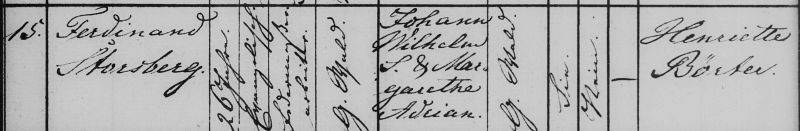 15.
Ferdinand
Storsberg.
26 Jahr.
Evangelisch.
G. Wald.
Johann
Wilhelm
S. & Mar-
garethe
Adrian.
G. Wald.
Sein
Nein.
—
Henriette
Börter.